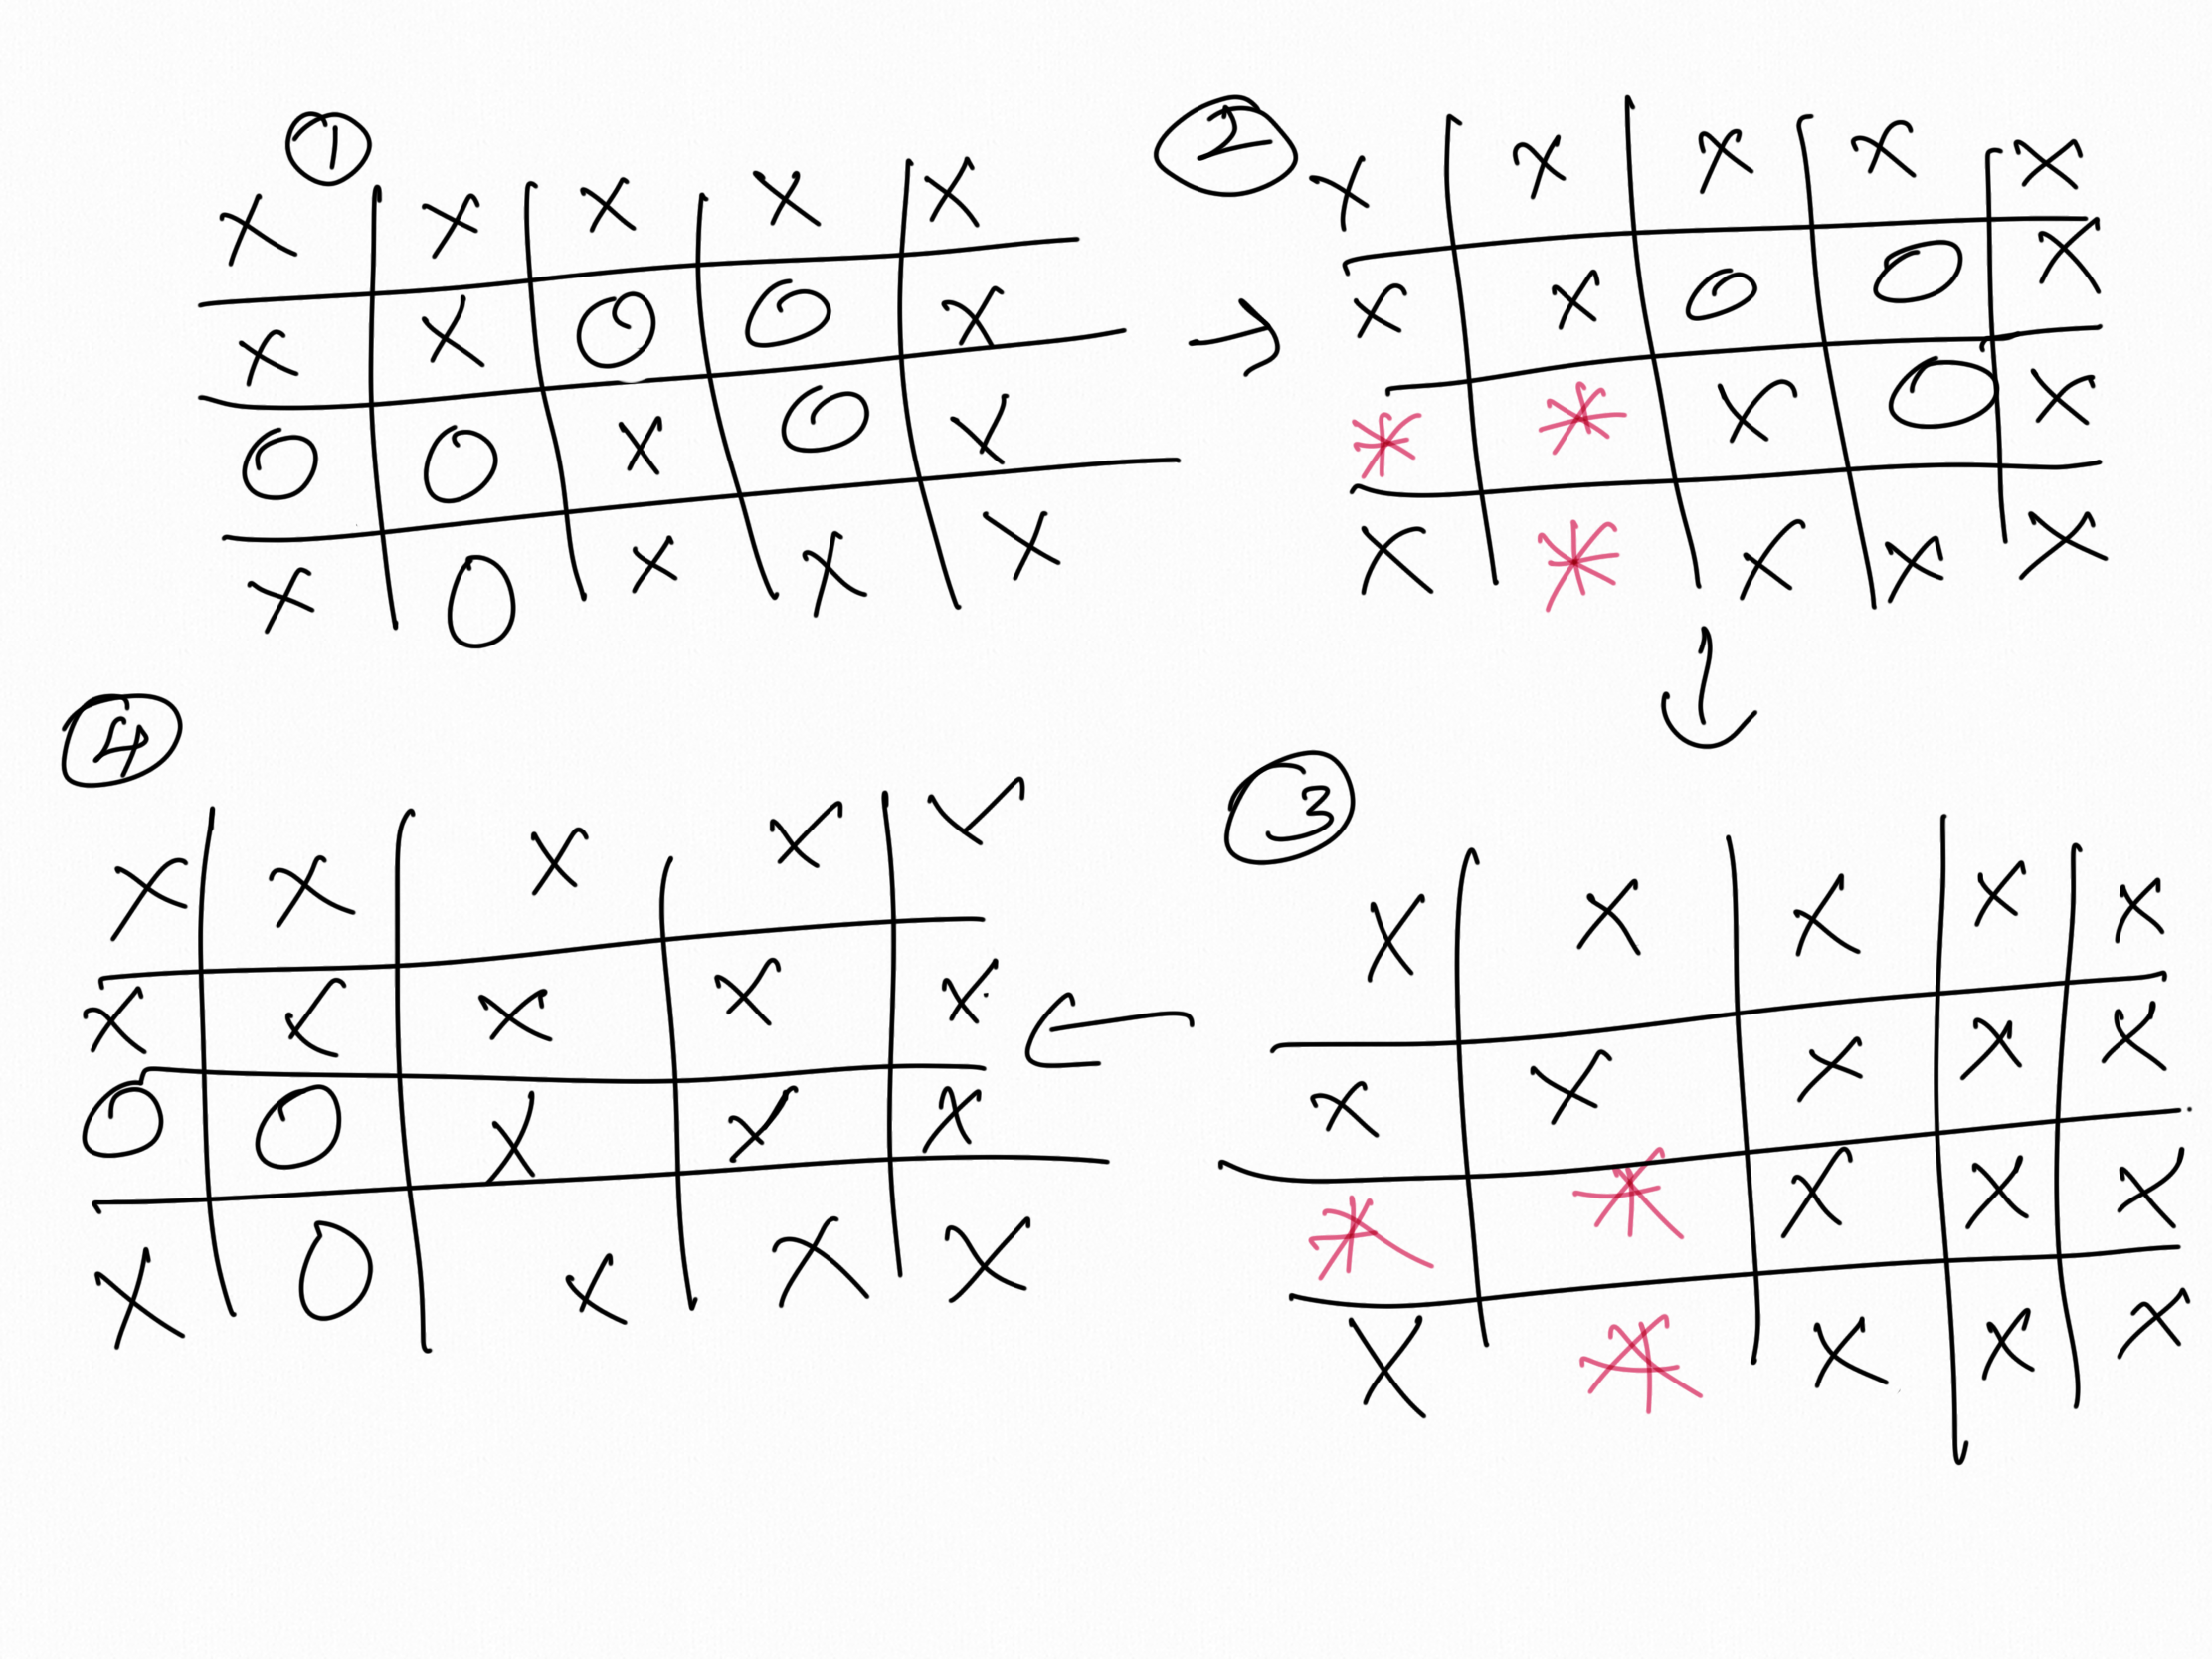 ①
X X X X X
X X O O X
O O X O X
X O X X X
②
X X X X X
X X O O X
* * X O X
X * X X X
③
X X X X X
X X X X X
* * X X X
X * X X X
④
X X X X X
X X X X X
O O X X X
X O X X X